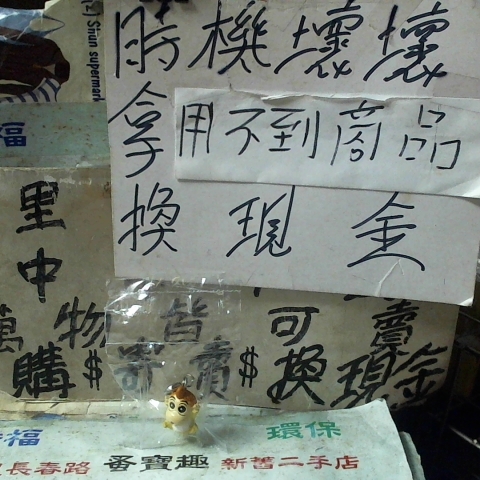 Shun supermark
時機壞壞
拿用不到商品
換現金
福
里
中
萬物皆可賣
購$寄賣$換現金
福 環保
長春路 蚤寶趣 新舊二手店